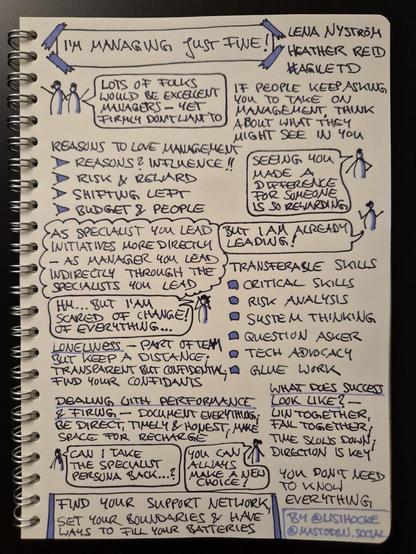 I'M MANAGING JUST FINE!
LENA NYSTRÖM
HEATHER REID
#AGILETD
LOTS OF FOLKS
WOULD BE EXCELLENT
MANAGERS - YET
FIRMLY DON'T WANT TO
IF PEOPLE KEEP ASKING
YOU TO TAKE ON
MANAGEMENT, THINK
ABOUT WHAT THEY
MIGHT SEE IN YOU
REASONS TO LOVE MANAGEMENT
REASONS? INFLUENCE!!
RISK & REWARD
SHIFTING LEFT
BUDGET & PEOPLE
SEEING YOU
MADE A
DIFFERENCE
FOR SOMEONE
IS SO REWARDING
AS SPECIALIST YOU LEAD
INITIATIVES MORE DIRECTLY
- AS MANAGER YOU LEAD
INDIRECTLY THROUGH THE
SPECIALISTS YOU LEAD
BUT I AM ALREADY
LEADING!
TRANSFERABLE SKILLS
CRITICAL SKILLS
RISK ANALYSIS
SYSTEM THINKING
QUESTION ASKER
TECH ADVOCACY
GLUE WORK
HM... BUT I'M
SCARED OF CHANGE!
OF EVERYTHING...
LONELINESS - PART OF TEAM
BUT KEEP A DISTANCE,
TRANSPARENT BUT CONFIDENTIAL,
FIND YOUR CONFIDANTS
DEALING WITH PERFORMANCE
& FIRING - DOCUMENT EVERYTHING,
BE DIRECT, TIMELY & HONEST, MAKE
SPACE FOR RECHARGE
WHAT DOES SUCCESS
LOOK LIKE? -
WIN TOGETHER,
FAIL TOGETHER;
TIME SLOWS DOWN,
DIRECTION IS KEY
CAN I TAKE
THE SPECIALIST
PERSONA BACK...?
YOU CAN
ALWAYS
MAKE A NEW
CHOICE!
YOU DON'T NEED
TO KNOW
EVERYTHING
FIND YOUR SUPPORT NETWORK,
SET YOUR BOUNDARIES & HAVE
WAYS TO FILL YOUR BATTERIES
BY @LISIHOCKE
@MASTODON.SOCIAL